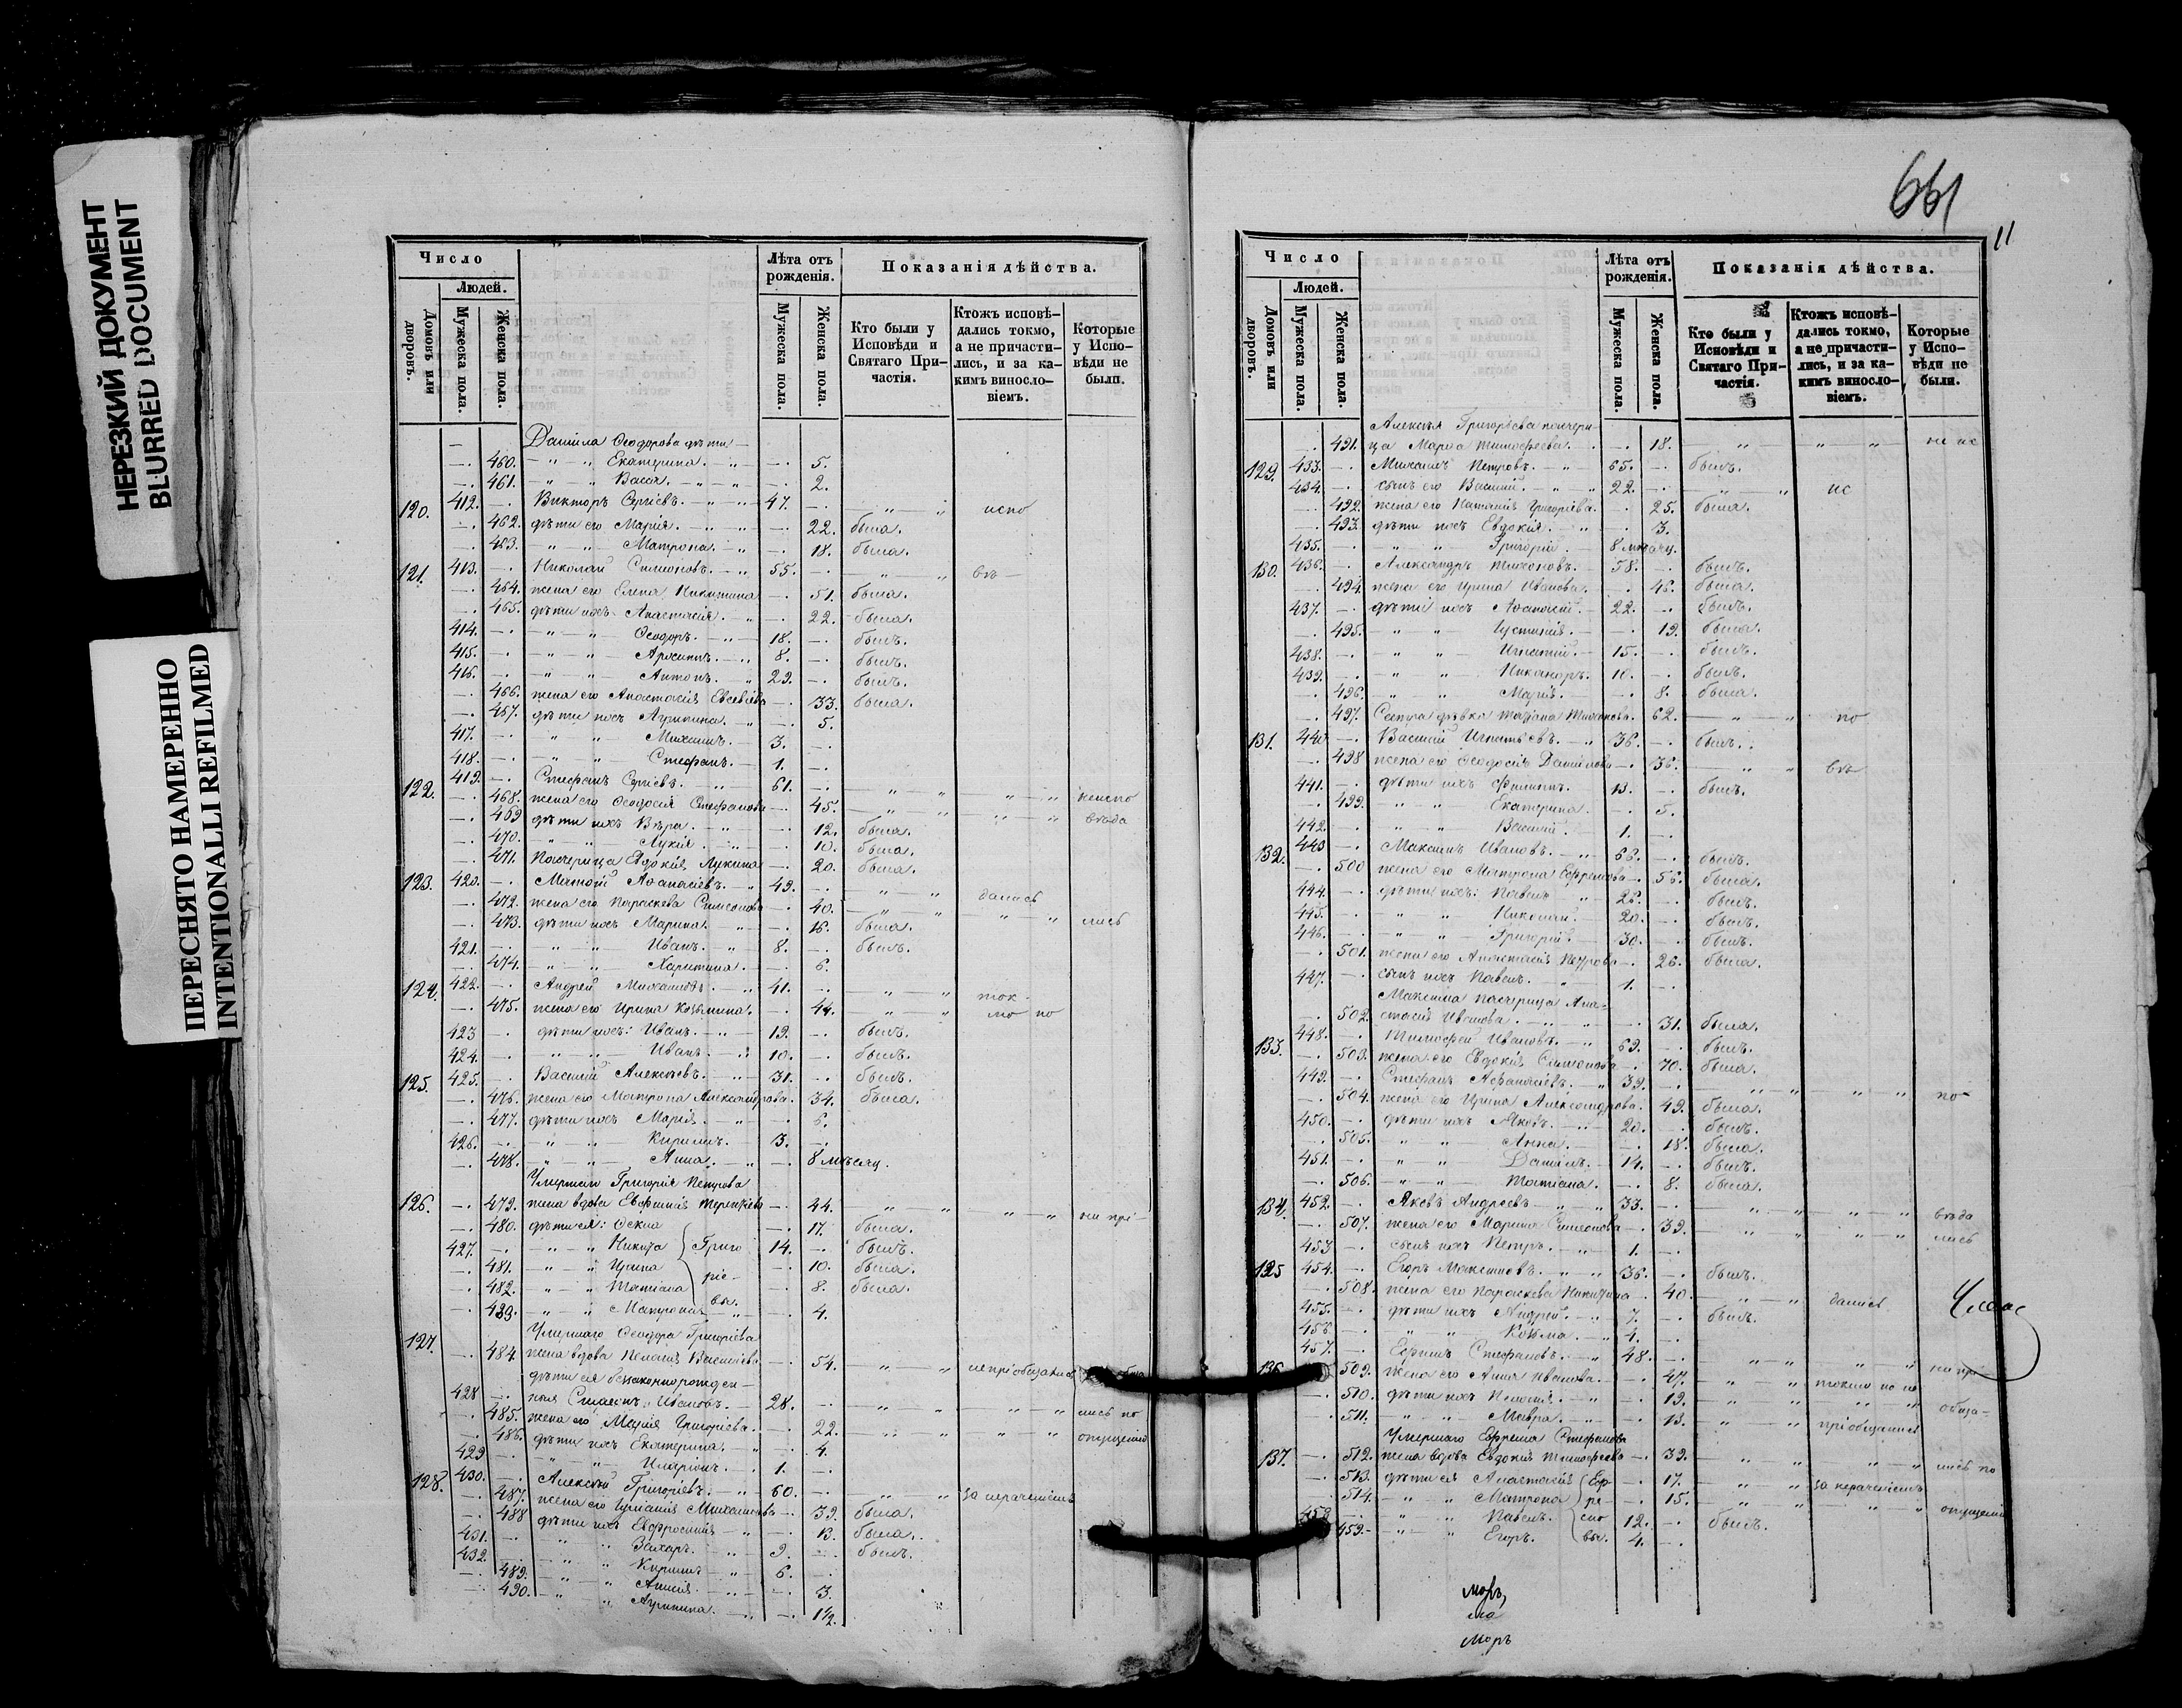 НЕРЕЗКИЙ ДОКУМЕНТ
BLURRED DOCUMENT
ПЕРЕСНЯТО НАМЕРЕННО
INTENTIONALLI REFILMED
Число
Людей.
Домовъ или дворовъ.
Мужеска пола.
Женска пола.
Лѣта отъ рожденія.
Мужеска пола.
Женска пола.
Показанія дѣйства.
Кто были у Исповѣди и Святаго Причастія.
Ктожъ исповѣдались токмо, а не причастились, и за какимъ винословіемъ.
Которые у Исповѣди не были.
Даніила Ѳеодорова дѣти
460. Екатерина. 5.
461. Васса. 2.
120. 412. Викторъ Сергіевъ. 47. испо
462. дѣти его Марія. 22. была.
463. Матрона. 18. была.
121. 413. Николай Симеоновъ. 55.
464. жена его Елена Никитина 51. была.
465. дѣти ихъ: Анастасія. 22. была.
414. Ѳеодоръ. 18. былъ.
415. 8. былъ.
416. Антонъ. 29. былъ.
466. жена его Анастасія Евсевіева 33. была.
467. дѣти ихъ Агрипина. 5.
417. Михаилъ. 3.
418. Стефанъ. 1.
122. 419. Стефанъ Сергіевъ. 61.
468. жена его Ѳеодосія Стефанова 45.
469 дѣти ихъ Вѣра. 12. была.
470. Лукія. 10. была.
471. Падчерица Евдокія Лукина 20. была.
123. 420. Матѳій Аѳанасіевъ. 49. дались
472. жена его Параскева Симеонова 40. лись
473. дѣти ихъ Марина. 16. была.
421. Иванъ. 8. былъ.
474. Харитина. 6.
124. 422. Андрей Михаиловъ. 41. ток
475. жена его Ирина Козьмина. 44. мо но
423 дѣти ихъ: Иванъ. 19. былъ.
424. Иванъ. 10. былъ.
125. 425. Василій Алексѣевъ. 31. былъ.
476. жена его Матрона Александрова. 34. была.
477. дѣти ихъ Марія. 6.
426. Кириллъ. 3.
478. Анна. 8 мѣсяц.
Умершаго Григорія Петрова
126. 479. жена вдова Евфимія Терентіева 44. ни прі-
480. дѣти ея: Ѳекла 17. была.
427. Никита 14. былъ.
481. Ирина 10. была.
482. Татіана 8. была.
Матрона 4.
Григоріевы.
Умершаго Ѳеодора Григоріева
127. 484. жена вдова Пелагія Василіева 54. непріобщались
дѣти ея беззаконнорожден-
428 ныя Симеонъ Ивановъ. 28. лись по
485. жена его Марія Григоріева. 22. опущенію
486. дѣти ихъ Екатерина. 4.
429 Иларіонъ. 1.
128. 430. Алексѣй Григоріевъ. 60. за нераченіемъ
487. жена его Іуліанія Михаилова 39. была.
488 дѣти ихъ Евфросинія 13. была.
431. Захаръ. 9. былъ.
432. Кириллъ 6.
489. Анисія. 3.
490. Агрипина. 1½.
661
11
Число
Людей.
Домовъ или дворовъ.
Мужеска пола.
Женска пола.
Лѣта отъ рожденія.
Мужеска пола.
Женска пола.
Показанія дѣйства.
Кто были у Исповѣди и Святаго Причастія.
Ктожъ исповѣдались токмо, а не причастились, и за какимъ винословіемъ.
Которые у Исповѣди не были.
Алексѣя Григоріева падчери-
491. ца Марѳа Тимоѳеева. 18. не ис
129. 433. Михаилъ Петровъ. 65. былъ.
434. сынъ его Василій. 22. ис
492. жена его Наталія Григоріева. 25. была.
493. дѣти ихъ Евдокія. 3.
435. Григорій. 8 мѣсяц.
130. 436. Александръ Тихоновъ. 58. былъ.
494. жена его Ирина Иванова. 46. была.
437. дѣти ихъ Аѳанасій. 22. былъ.
495. Іустинія. 19. была.
438. Игнатій. 15. былъ.
439. Никаноръ. 10. былъ.
496. Марія. 8. была.
497. дѣвка Татіана Тихонова. 62. по
131. 440. Василій Игнатіевъ. 36. былъ.
498 жена его Ѳеодосія Даніилова 36.
441. дѣти ихъ Филиппъ. 13. былъ.
499. Екатерина. 5.
442. Василій. 1.
132. 443 Максимъ Ивановъ. 66. былъ.
500 жена его Матрона Ефремова 56. была.
444. дѣти ихъ: Павелъ 26. былъ.
445. Николай. 20. былъ.
446. Григорій. 30. былъ.
501. жена его Анастасія Петрова 26. была.
447. сынъ ихъ Павелъ. 1.
Максима падчерица Ана-
502. стасія Иванова. 31. была.
133. 448. Тимоѳей Ивановъ. 69. былъ.
503. жена его Евдокія Симеонова 70. была.
449. Стефанъ Аѳанасіевъ. 39. по-
504. жена его Ирина Александрова. 49. была.
450. дѣти ихъ Яковъ. 20. былъ.
505. Анна. 18. была.
451. Даніилъ. 14. былъ.
506. Татіана. 8. была.
134. 452. Яковъ Андреевъ 33. вѣда
507. жена его Марина Симеонова 39. лись
453 сынъ ихъ Петръ. 1.
135 454. Егоръ Максимовъ. 36. былъ.
508. жена его Параскева Никитина 40. дались
455. дѣти ихъ Андрей. 7. былъ.
456. Козьма. 4.
136. 457. Стефановъ. 48. ни прі
509. жена его Анна Иванова. 47. токмо но не
510. дѣти ихъ Пелагія. 19. обща-
511. Мавра. 13. пріобщались
Умершаго Ефрема Стефанова
137. 512. жена вдова Евдокія Тимоѳеева 39. лись по
513. дѣти ея Анастасія 17. за нераченіемъ
514. Матрона 15. опущенію
458 Павелъ. 12. былъ.
459. Егоръ. 4.